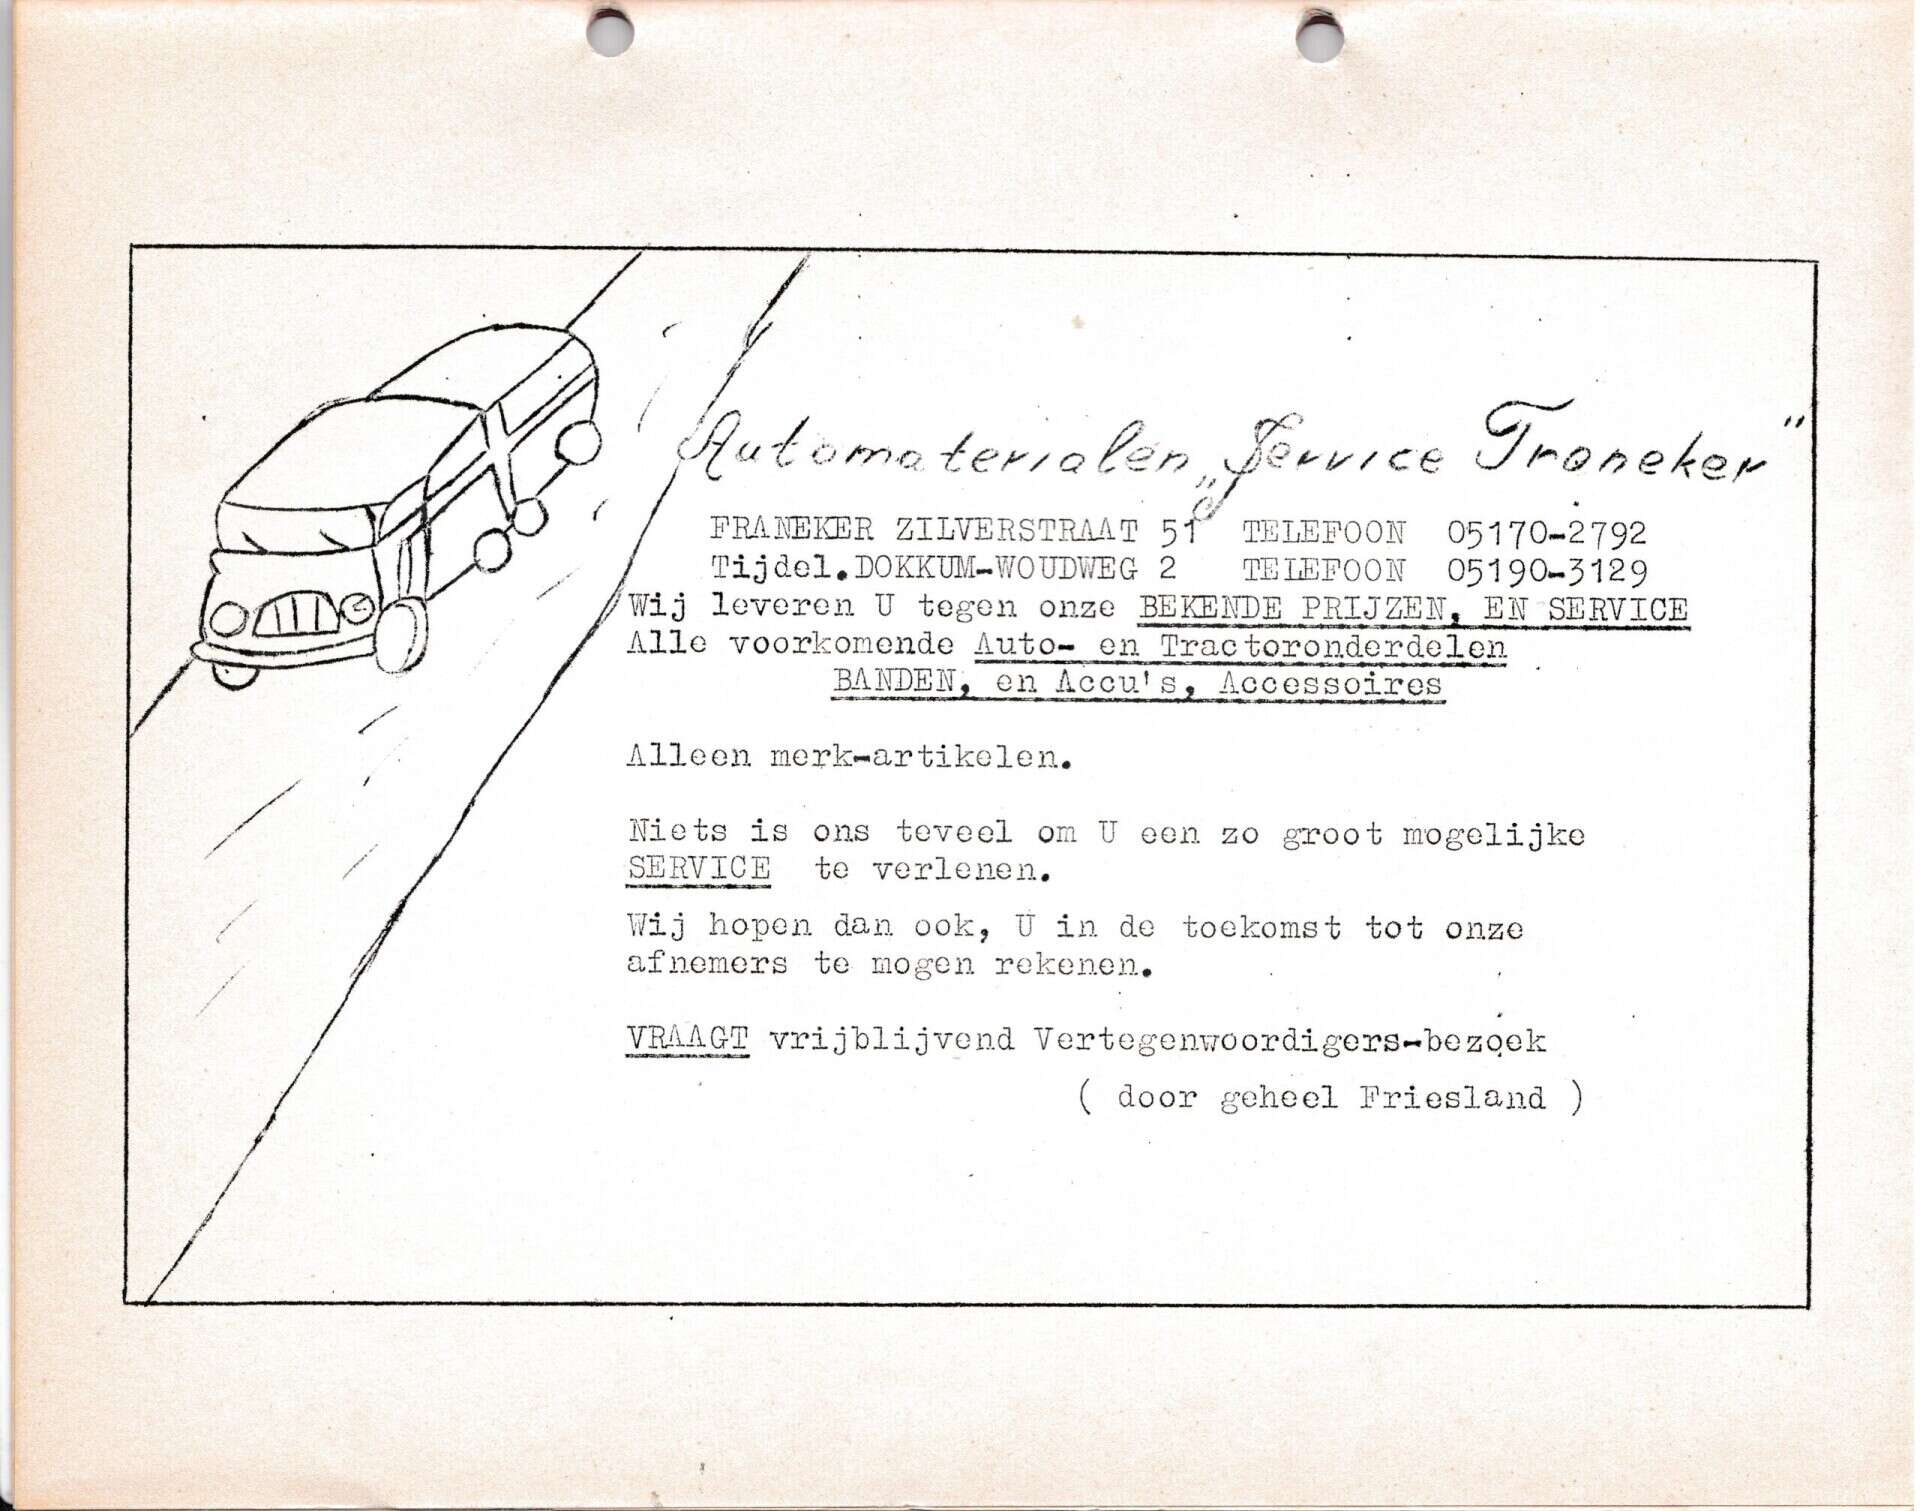 Automaterialen „Service Franeker"
FRANEKER ZILVERSTRAAT 51 TELEFOON 05170-2792
Tijdel.DOKKUM-WOUDWEG 2 TELEFOON 05190-3129
Wij leveren U tegen onze BEKENDE PRIJZEN, EN SERVICE
Alle voorkomende Auto- en Tractoronderdelen
BANDEN, en Accu's, Accessoires
Alleen merk-artikelen.
Niets is ons teveel om U een zo groot mogelijke
SERVICE te verlenen.
Wij hopen dan ook, U in de toekomst tot onze
afnemers te mogen rekenen.
VRAAGT vrijblijvend Vertegenwoordigers-bezoek
( door geheel Friesland )